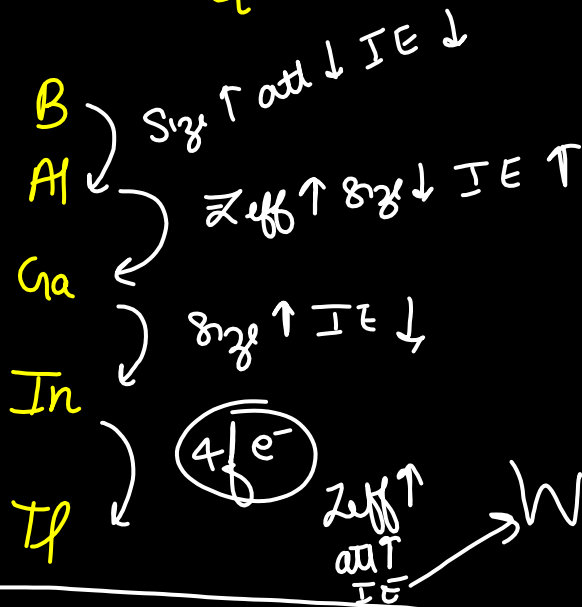 B
Size ↑ att ↓ IE ↓
Al
Zeff ↑ Size ↓ IE ↑
Ga
Size ↑ IE ↓
In
4f e⁻
Tl
Zeff ↑
att ↑
IE